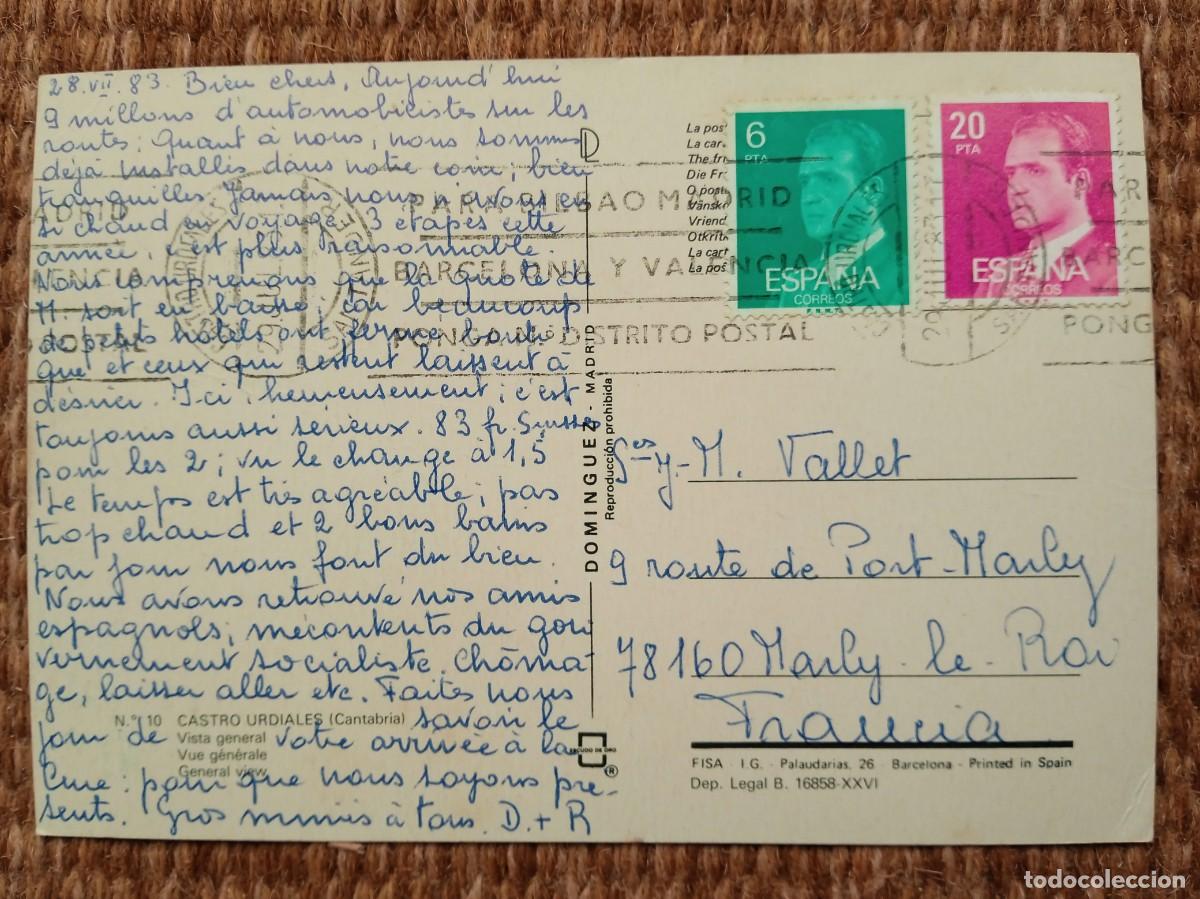 28.VII.83. Bien chers, Aujourd'hui
9 millions d'automobilistes sur les
routes; Quant à nous, nous sommes
déjà installés dans notre coin; bien
tranquilles. Jamais nous n'avons eu
si chaud en voyage, 3 étapes cette
année, c'est plus raisonnable
Nous comprenons que la quote de
M. soit en baisse, car beaucoup
de petits hôtels ont fermé bouti-
que et ceux qui restent laissent à
désirer. Ici, heureusement; c'est
toujours aussi sérieux. 83 fr. Suisses
pour les 2; vu le change à 1,5
Le temps est très agréable; pas
trop chaud et 2 bons bains
par jour nous font du bien.
Nous avons retrouvé nos amis
espagnols; mécontents du gou
vernement socialiste. Chôma-
ge, laisser aller etc. Faites nous
savoir le
jour de votre arrivée à la
Cure: pour que nous soyons pré-
sents. Gros mimis à tous. D. + R
N.° 10 CASTRO URDIALES (Cantabria)
Vista general
Vue générale
General view
DOMINGUEZ - MADRID
Reproducción prohibida
ESCUDO DE ORO
®
La pos
La car
The fr
Die Fr
O post
Vänsk
Vriend
Otkrit
La cart
La pos
6
PTA
ESPAÑA
CORREOS
F.N.M.T.
20
PTA
ESPAÑA
CORREOS
PARA BILBAO MADRID
BARCELONA Y VALENCIA
PONGA DISTRITO POSTAL
ADRID
ENCIA
POSTAL
PAR
BARC
PONG
J.-M. Vallet
9 route de Port-Marly
78160 Marly-le-Roi
Francia
FISA - I.G. - Palaudarias, 26 - Barcelona - Printed in Spain
Dep. Legal B. 16858-XXVI
todocoleccion